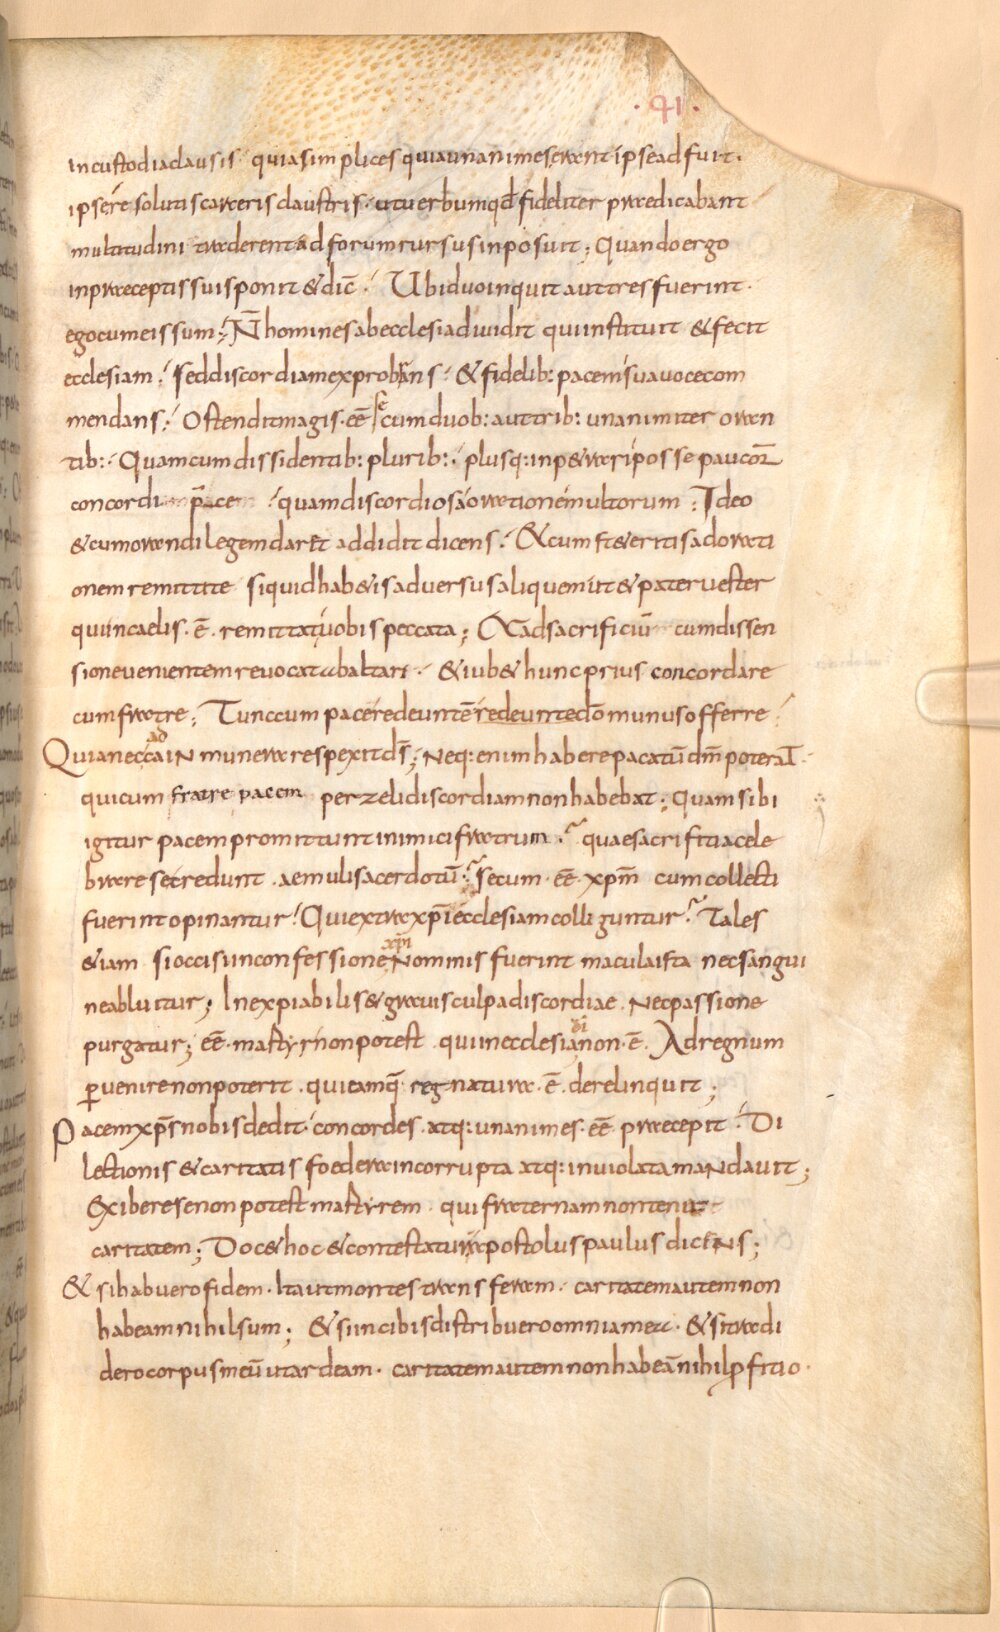 · 91 ·
in custodia clausis quia simplices quia unanimes erant ipse adfuit.
ipse rẽ solutis carceris claustris. ut uerbum qđ fideliter praedicabant
multitudini traderent ad forum rursus inposuit; Quando ergo
in praeceptis suis ponit & dic̄. Ubi duo inquit aut tres fuerint.
ego cum eis sum; N̄ homines ab ecclesia diuidit qui instituit & fecit
ecclesiam; sed discordiam exprobrans & fidelib: pacem sua uoce com
mendans; Ostendit magis. eē se cum duob: aut trib: unanimiter oran
tib:. Quam cum dissidentib: plurib:. plusq: inpetrari posse paucoꝝ
concordi p̄cem quam discordiosā orationē multorum; Ideo
& cum orandi legem daret addidit dicens. Et cum st&eritis ad orati
onem remittite si quid hab&is aduersus aliquem ut & pater uester
qui in caelis. ē. remittat uobis peccata; Et ad sacrificiū cum dissen
sione uenientem reuocat ab altari. & iub& hunc prius concordare
cum fratre; Tunc cum pace redeuntē redeunte dō munus offerre
Quia nec ad cain munera respexit dš; Neq: enim habere pacatū dm̄ poterat.
qui cum fratre pacem per zeli discordiam non habebat; Quam sibi
igitur pacem promittunt inimici fratrum. quae sacrifitia cele
brare se credunt. aemuli sacerdotū. Secum. eē. xp̄m cum collecti
fuerint opinantur. Qui extra xp̄i ecclesiam colliguntur. Tales
&iam si occisi in confessione xp̄i Nominis fuerint macula ista nec sangui
ne abluitur; Inexpiabilis & grauis culpa discordiae. Nec passione
purgatur; eē. mastyr non potest qui in ecclesia dī non. ē. Ad regnum
ꝑuenire non poterit. qui eam q̄ regnatura. ē. derelinquit;
Pacem xp̄s nobis dedit. concordes. atq: unanimes. eē praecepit. Di
lectionis & caritatis foedera incorrupta atq: inuiolata maNdauit;
Exibere se non potest mastyrem qui fraternam non tenuit
caritatem; Doc& hoc & contestatur apostolus paulus diceNs;
& si habuero fidem. Ita ut montes transferam. caritatem autem non
habeam nihil sum; & si in cibis distribuero omnia mea. & si tradi
dero corpus meū ut ardeam. caritatem autem non habeā nihil ꝓfitio.